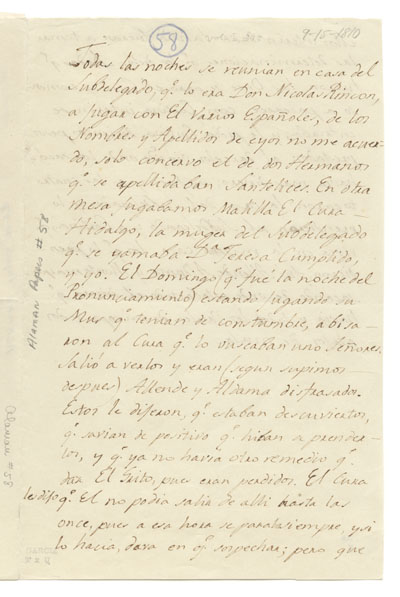 58
9-15-1810
Todas las noches se reunian en casa del
Subdelegado, q.e lo era Don Nicolas Rincon,
a Jugar con El Varios Españoles, de los
Nombres y Apellidos de eyos no me acuer-
do, solo concervo el de dos Hermanos
q.e se apellidaban Santelices. En otra
mesa Jugabamos Malilla El Cura
Hidalgo, la muger del Subdelegado
q.e se yamaba D.a Teresa Cumplido,
y yo. El Domingo (q.e fué la noche del
Pronunciamiento) estando jugando su
Mus q.e tenian de constumbre, abisa-
ron al Cura q.e lo vuscaban uno Señores.
Salió a verlos y eran (segun supimos
despues) Allende y Aldama disfrasados.
Estos le dijeron, q.e estaban descuviertos,
q.e savian de positivo q.e hiban a prender-
los, y q.e ya no havia otro remedio q.e
dar El Grito, pues eran perdidos. El Cura
les dijo q.e El no podia salir de alli hasta las
once, pues a esa hora se paraba siempre, y si
lo hacia, daria en q.e sospechar; pero que
Alaman Papers #58
Alaman #58